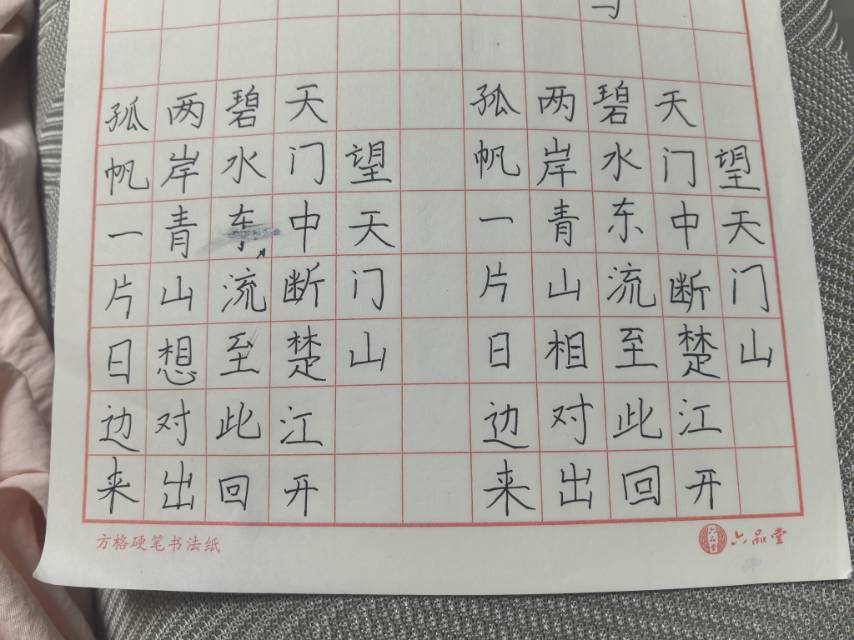 望天门山
天门中断楚江开
碧水东流至此回
两岸青山相对出
孤帆一片日边来
望天门山
天门中断楚江开
碧水东流至此回
两岸青山想对出
孤帆一片日边来
方格硬笔书法纸
六品堂